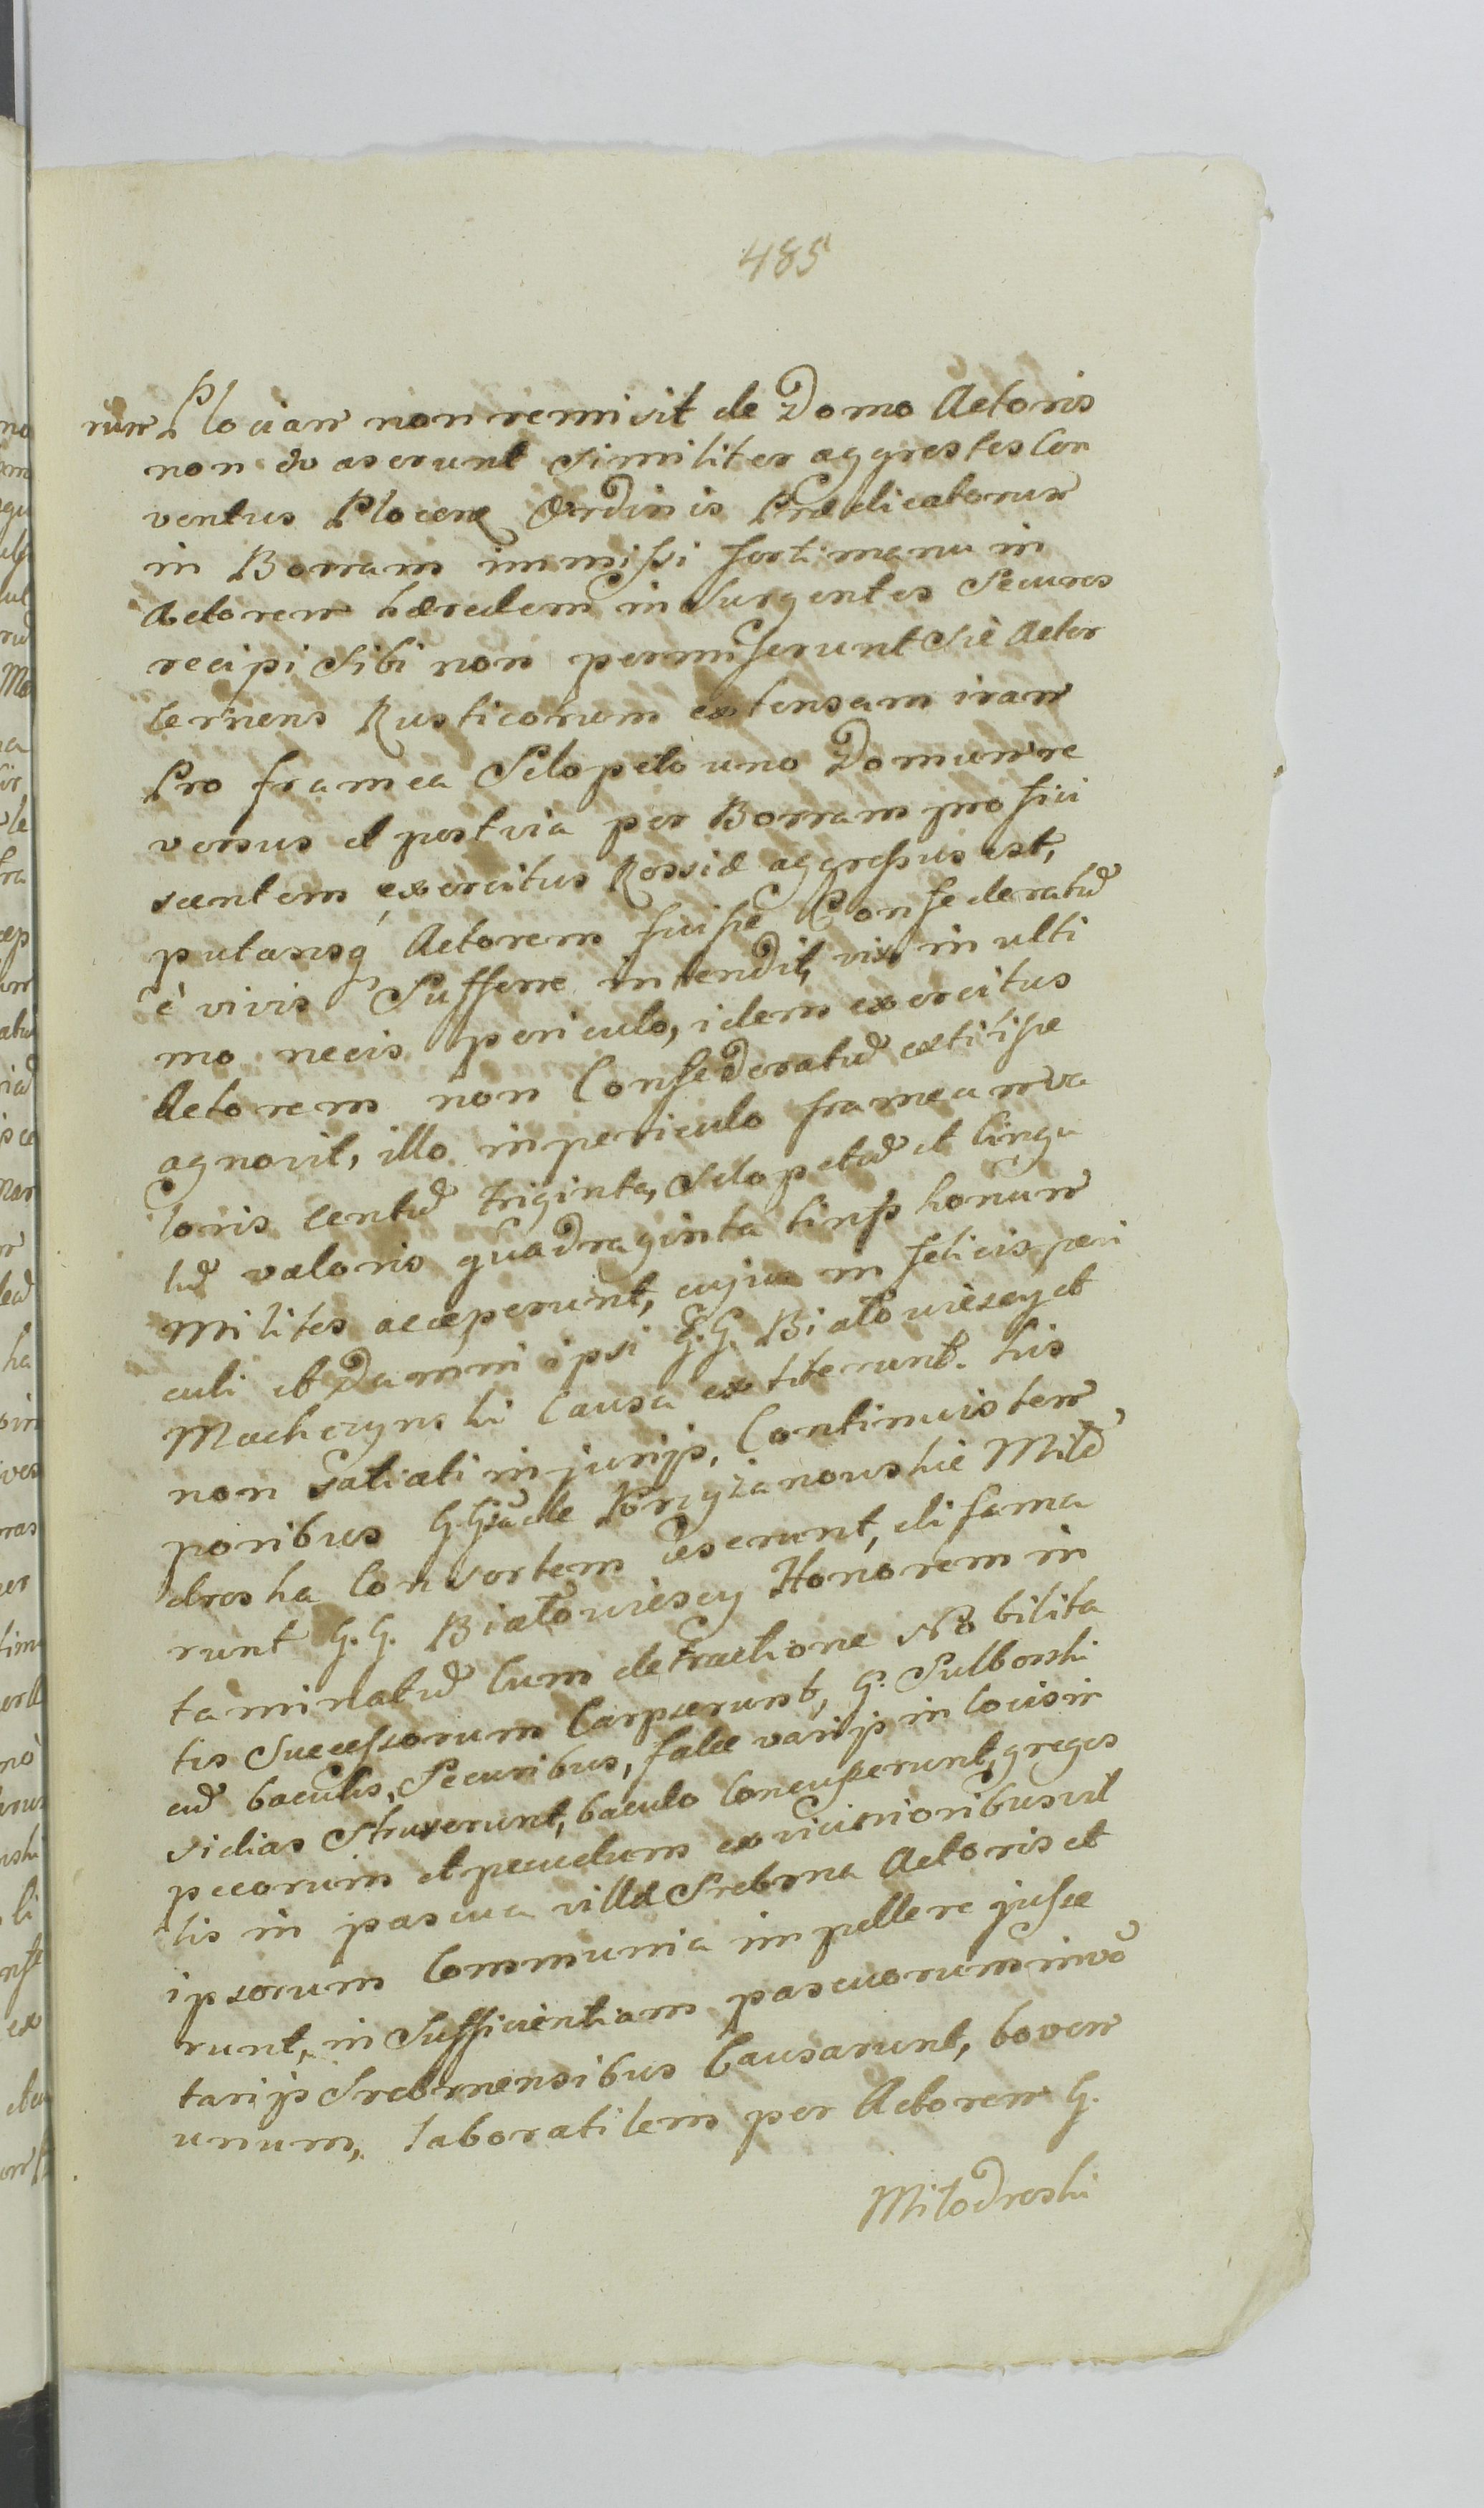 485
rum Plocian non remisit de Domo Actoris
non evaserunt similiter aggrestes Con
ventus Plocens Ordinis Prædicatorum
in Borram immissi forti manu in
Actorem hæredem insurgentes Secures
recipi sibi non permiserunt Sic Actor
Cernens Rusticorum extensam iram
Pro framea Sclopeto uno Domum re
versus et post via per Borram profici
scentem exercitus Rossiæ aggressus est,
putansq Actorem fuisse Confederatū
è vivis Sufferre intendit, vix in ulti
mo necis periculo, idem exercitus
Actorem non Confederatū extitisse
agnovit, illo in periculo frameam va
loris Centū triginta, Sclopetū et Cingu
lū valoris quadraginta tinfhonum
Milites acceperunt, cujus infelicis peri
culi et Damni ipsi G.G. Białowiescy et
Machczynski Causa extiterunt. his
non satiati injurijs, Continuis tem
poribus de Krzyzanowskie Miło
droska Consortem læserunt, difama
runt G.G. Białowiescy Honorem in
taminatū Cum detractione Nobilita
tis Successorum Carpserunt, G. Sulborski
cū baculis, Securibus, falce varijs in locis in
sidias Struxerunt, baculo Concusserunt, greges
pecorum et pecudum ex vicinioribus vil
lis in pascua villæ Srebrna Actoris et
ipsorum Communia impellere jusse
runt, insufficientiam pascuorum invō
tarijs Srebrnensibus Causarunt, bovem
unum, laboratilem per Actorem G.
Miłodroski